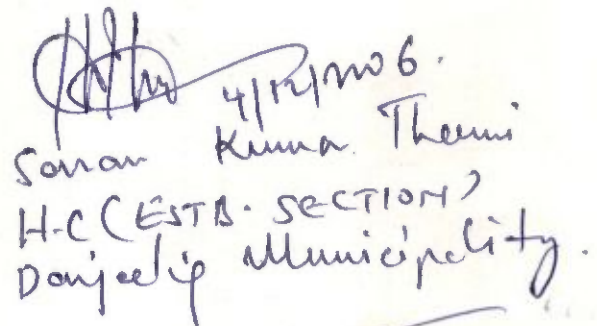 4/12/2006.
Sonam Kumar Thami
H.C (ESTB. SECTION)
Darjeeling Municipality.